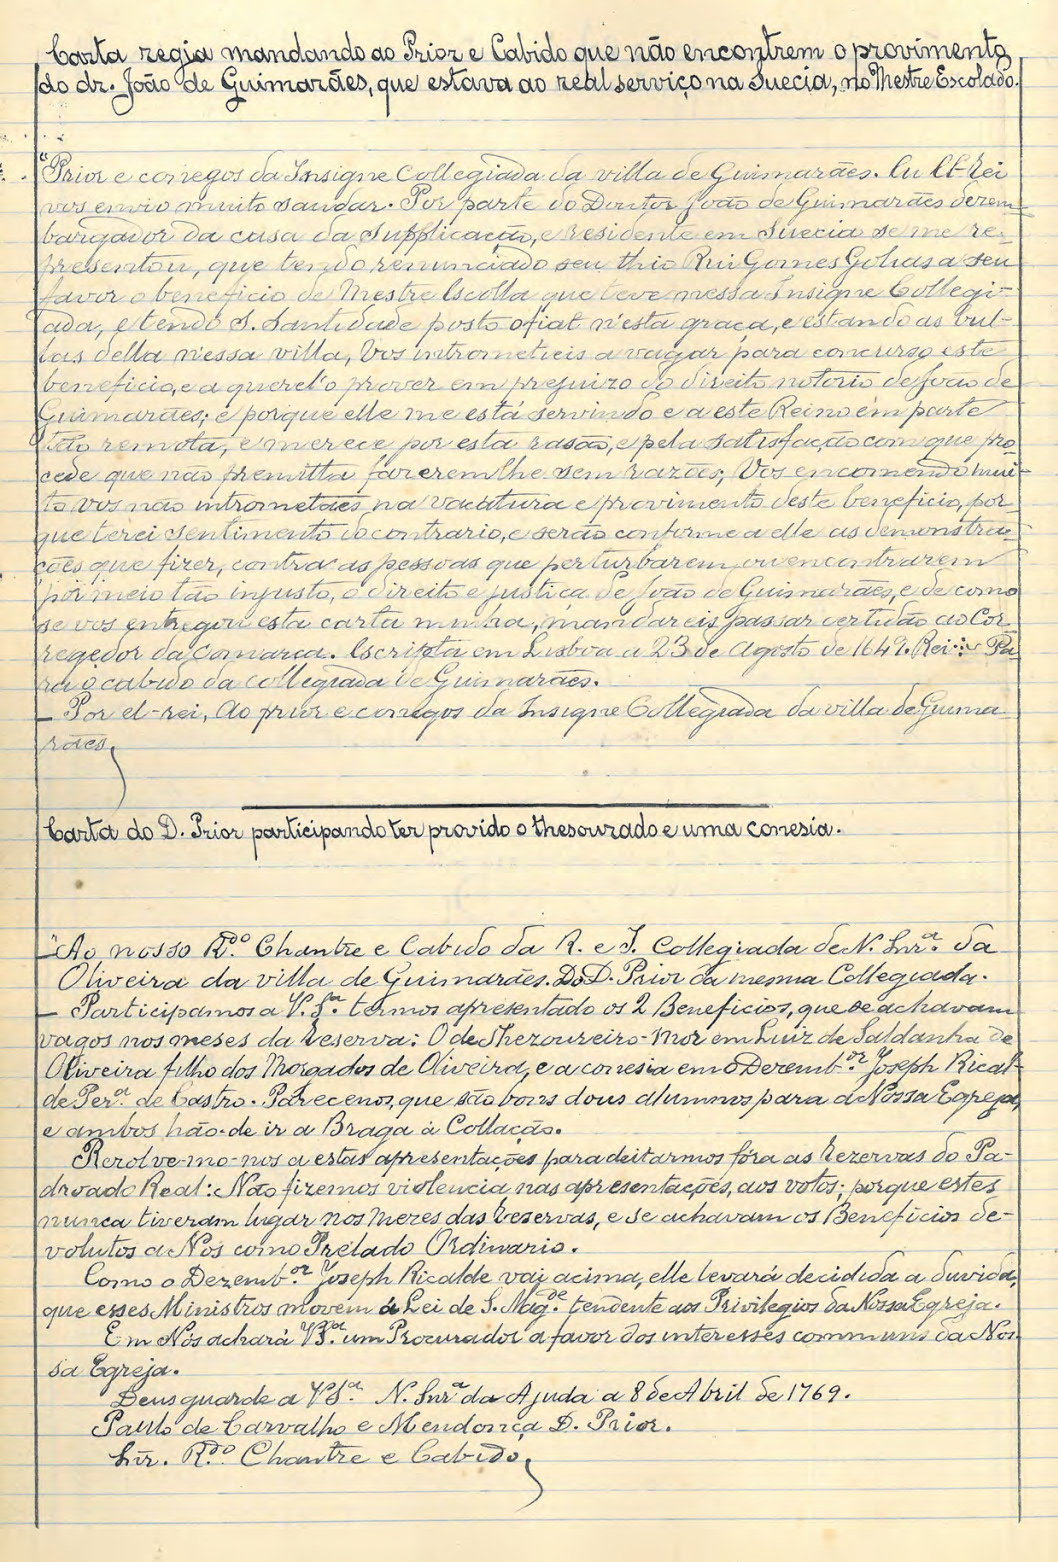 Carta regia mandando ao Prior e Cabido que não encontrem o provimento
do dr. João de Guimarães, que estava ao real serviço na Suecia, no Mestre Escolado.
"Prior e conegos da Insigne Collegiada da villa de Guimarães. Eu El-Rei
vos envio muito saudar. Por parte do Doutor João de Guimarães dezem-
bargador da casa da Supplicação, e residente em Suecia se me re-
presentou, que tendo renunciado seu thio Rui Gomes Golias a seu
favor o beneficio de Mestre Escolla que teve nessa Insigne Collegi-
ada, e tendo S. Santidade posto o fiat n'esta graça, e estando as bul-
las della n'essa villa, Vos intrometieis a vagar para concurso este
beneficio, e a querel'o prover em prejuizo do direito notorio de João de
Guimarães; e porque elle me está servindo e a este Reino em parte
tão remota, e merece por esta rasão, e pela satisfação com que pro-
cede que não premitta fazerem lhe sem razões, Vos encomendo mui-
to vos não intrometaes na vacatura e provimento deste beneficio, por-
que terei sentimento do contrario, e serão conforme a elle as demonstra-
ções que fizer, contra as pessoas que perturbarem, ou encontrarem
por meio tão injusto, o direito e justiça de João de Guimarães, e de como
se vos entregou esta carta minha, mandareis passar certidão ao Cor-
regedor da Comarca. Escripta em Lisboa a 23 de Agosto de 1649. Rei ∴ Pa-
ra o cabido da Collegiada de Guimarães.
— Por el-rei, Ao prior e conegos da Insigne Collegiada da villa de Guima-
rães,
Carta do D. Prior participando ter provido o thesourado e uma conesia.
— "Ao nosso R.do Chantre e Cabido da R. e I. Collegiada de N. Snr.a da
Oliveira da villa de Guimarães. Do D. Prior da mesma Collegiada.
— Participamos a V. S.a termos apresentado os 2 Beneficios, que se achavam
vagos nos meses da Reserva: O de Thezoureiro-Mor em Luiz de Saldanha de
Oliveira filho dos Morgados de Oliveira, e a conesia em o Dezemb.or Joseph Rical-
de Per.a de Castro. Parece nos, que são bons dous alumnos para a Nossa Egreja,
e ambos hão-de ir a Braga á Collação.
Rezolve-mo-nos a estas apresentações para deitarmos fóra as Rezervas do Pa-
droado Real: Não fizemos violencia nas apresentações, aos votos; porque estes
nunca tiveram lugar nos Mezes das Reservas, e se achavam os Beneficios de-
volutos a Nós como Prelado Ordinario.
Como o Dezemb.or Joseph Ricalde vai acima, elle levará decidida a duvida,
que esses Ministros movem á Lei de S. Mag.de tendente aos Privilegios da Nossa Egreja.
Em Nós achará V. S.a um Procurador a favor dos interesses communs da Nos-
sa Egreja.
Deus guarde a V. S.a N. Snr.a da Ajuda a 8 de Abril de 1769.
Paulo de Carvalho e Mendonça D. Prior.
Snr. R.do Chantre e Cabido,